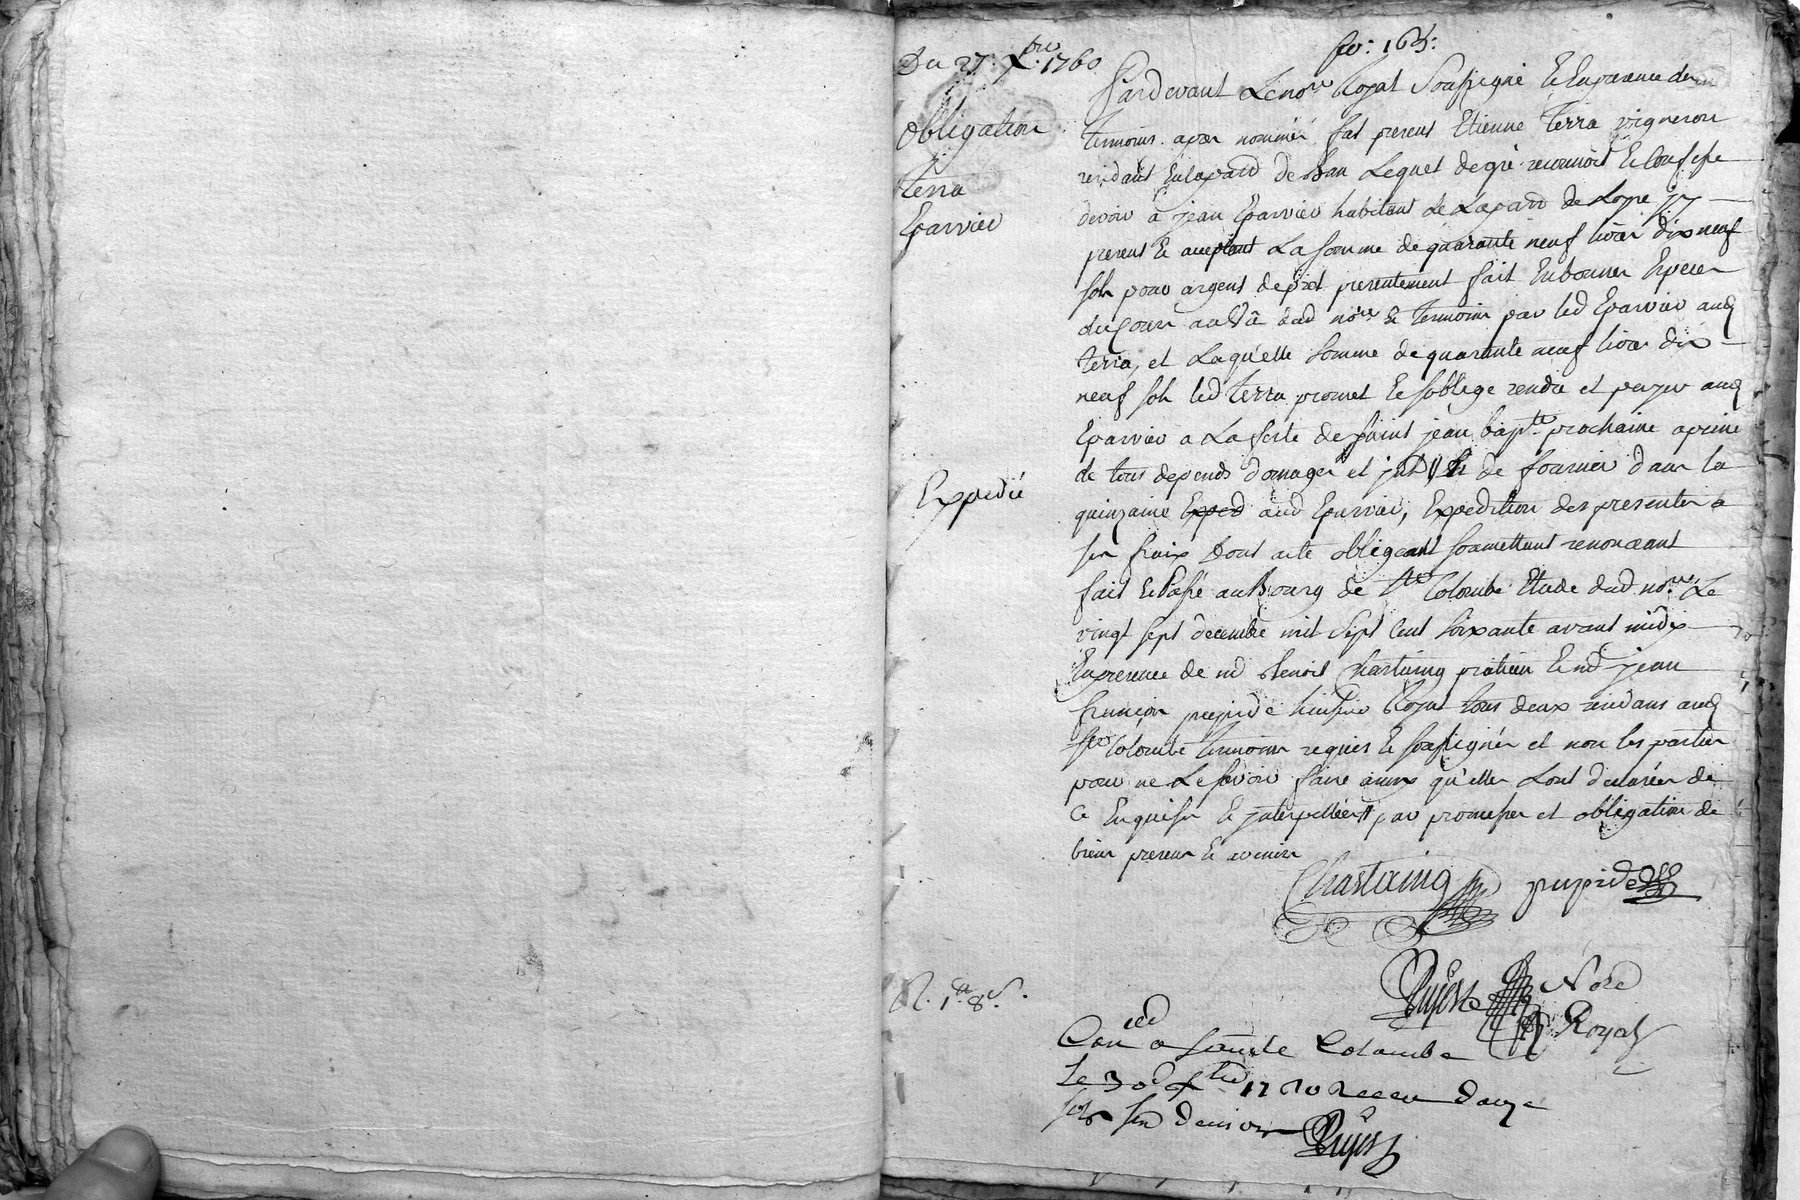 Du 27. Xbre 1760
fo: 163:
obligation
Terra
Eparvier
Pardevant Le nore Royal Soussigné Et En presence des
temoins apres nommés fut present Etienne Terra vigneron
residant En la par de Leguet de gré reconnoit Et Confesse
devoir a jean Eparvier habitant de La par de Loyre jcy
present Et acceptant La somme de quarante neuf livres dix neuf
sols pour argent de pret presentement fait En bonnes Especes
du cours au vû dud nore Et temoins par led Eparvier aud
Terra, et Laquelle Somme de quarante neuf livres dix
neuf sols led Terra promet Et soblige rendre et payer aud
Eparvier a La feste de saint jean bapte prochaine a peine
de tous depends domages et jnts Et de fournir dans la
quinzaine Exped aud Eparvier, Expedition des presentes a
ses fraix Dont acte obligeant soumettant renonceant
fait Et Passé au Bourg de Ste Colombe Etude dud nore Le
vingt sept decembre mil Sept Cent Soixante avant midy
En presence de me Benoit Chastaing praticien Et me jean
françois pupide huissier Royal tous deux residans aud
Ste Colombe temoins requis Et soussignés et non les parties
pour ne Le savoir faire ainsy qu'elles Lont declarées de
Ce Enquises Et jnterpellées par promesses et obligation de
biens presens Et avenir
Expedié
Chastaing pupide
N. 1# 8s.
Nore
Royal
Conlé a sainte Colombe
Le 30e Xbre 1760 Receu douze
sols six deniers